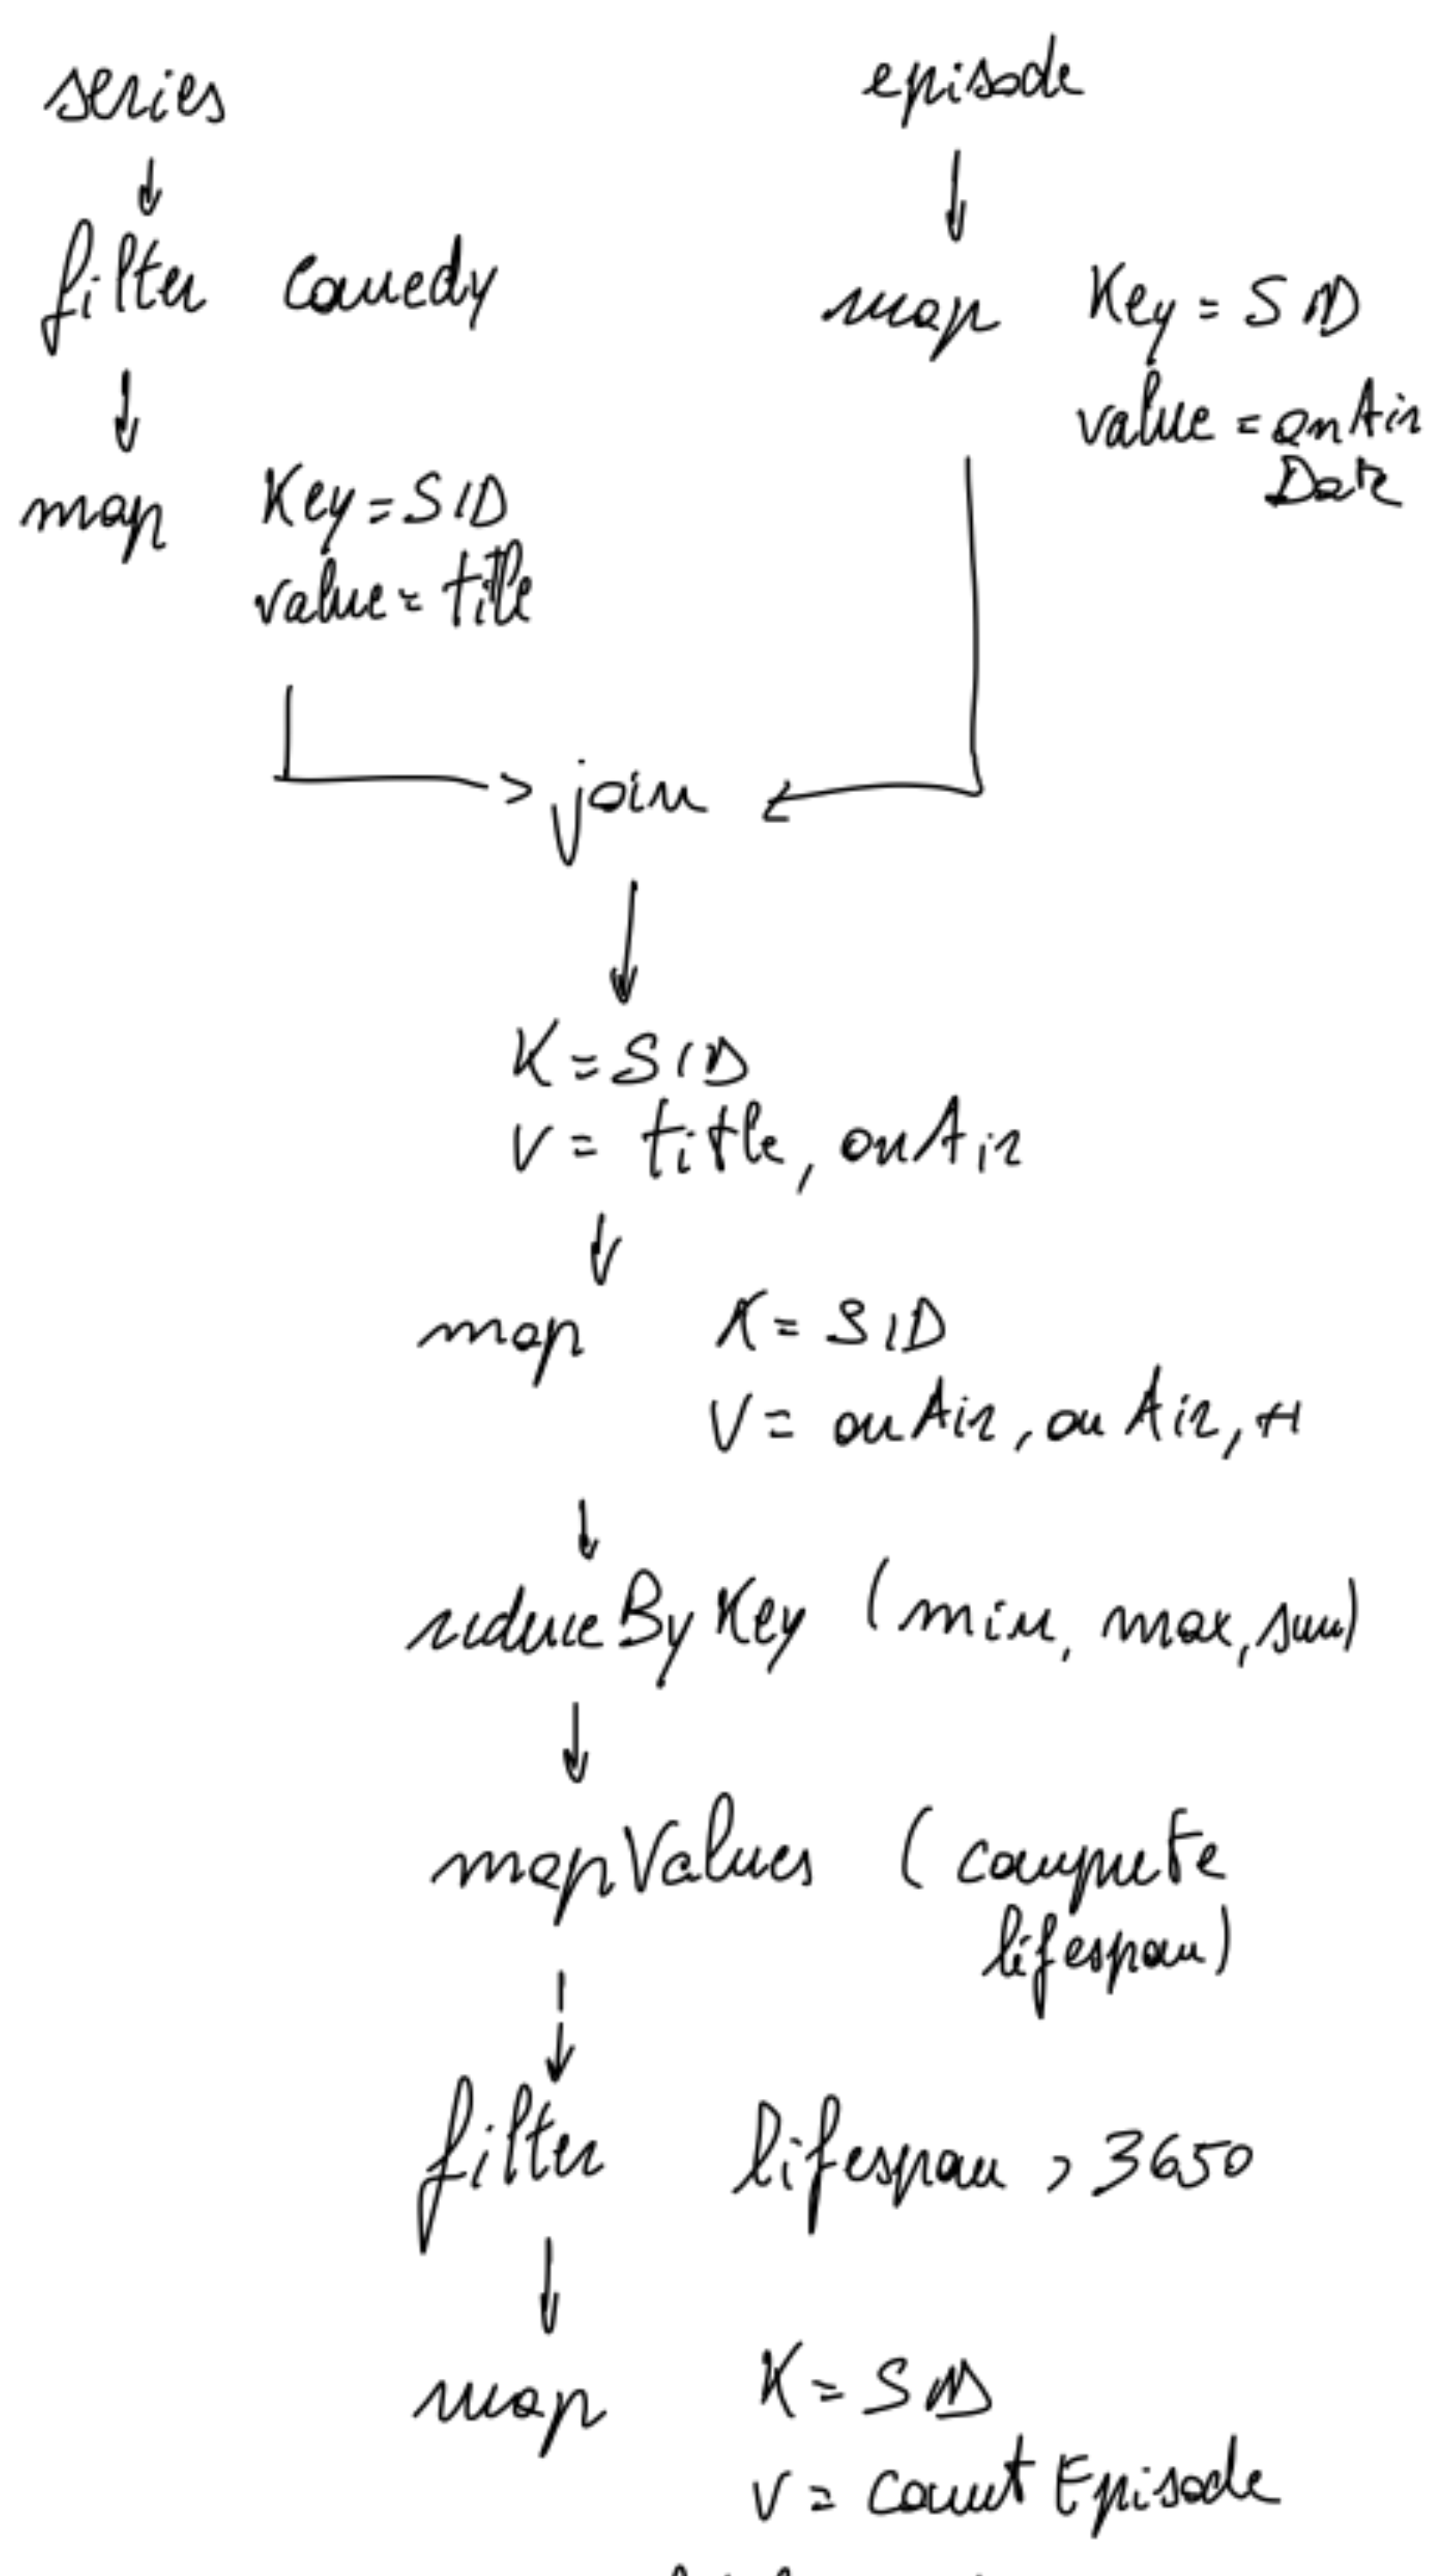 series
filter comedy
map Key = SID
value = title
episode
map Key = SID
value = onAir
Date
join
K = SID
V = title, onAir
map K = SID
V = onAir, onAir, +1
reduceByKey (min, max, sum)
mapValues (compute
lifespan)
filter lifespan > 3650
map K = SID
V = countEpisode